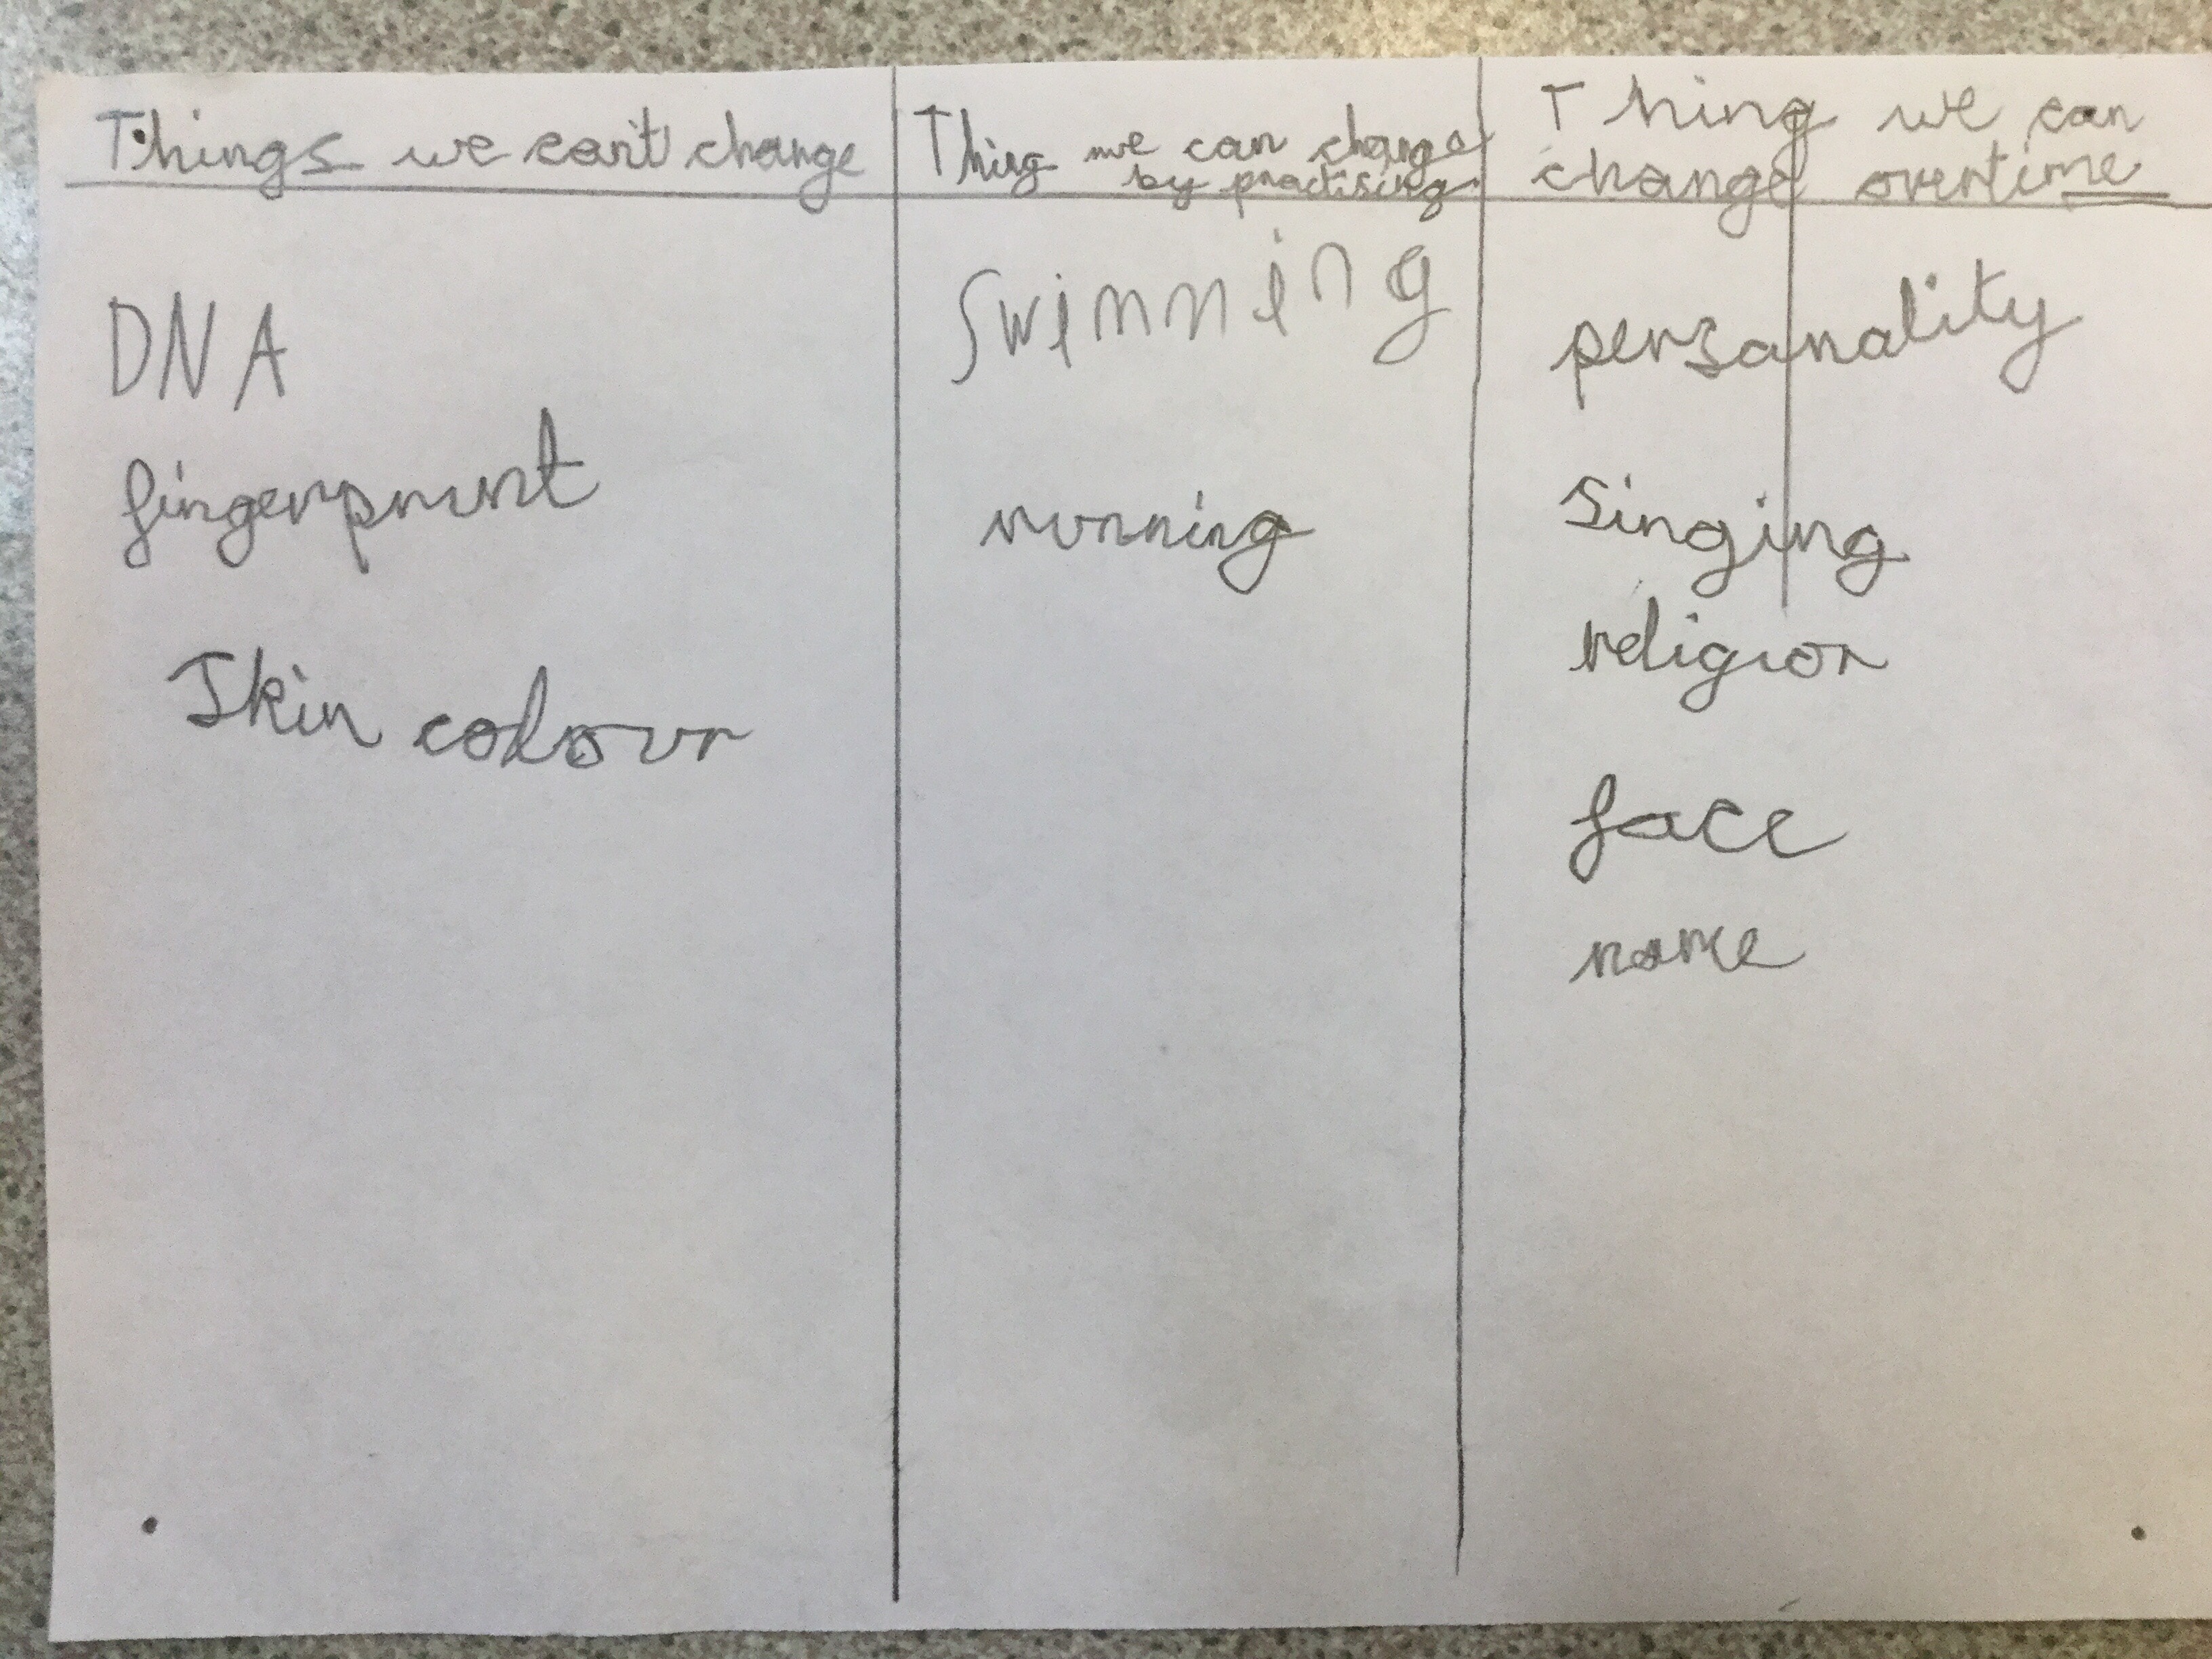 Things we can't change
DNA
fingerprint
Skin colour
Thing we can change
by practising
swimming
running
Thing we can
change overtime
personality
singing
religion
face
name